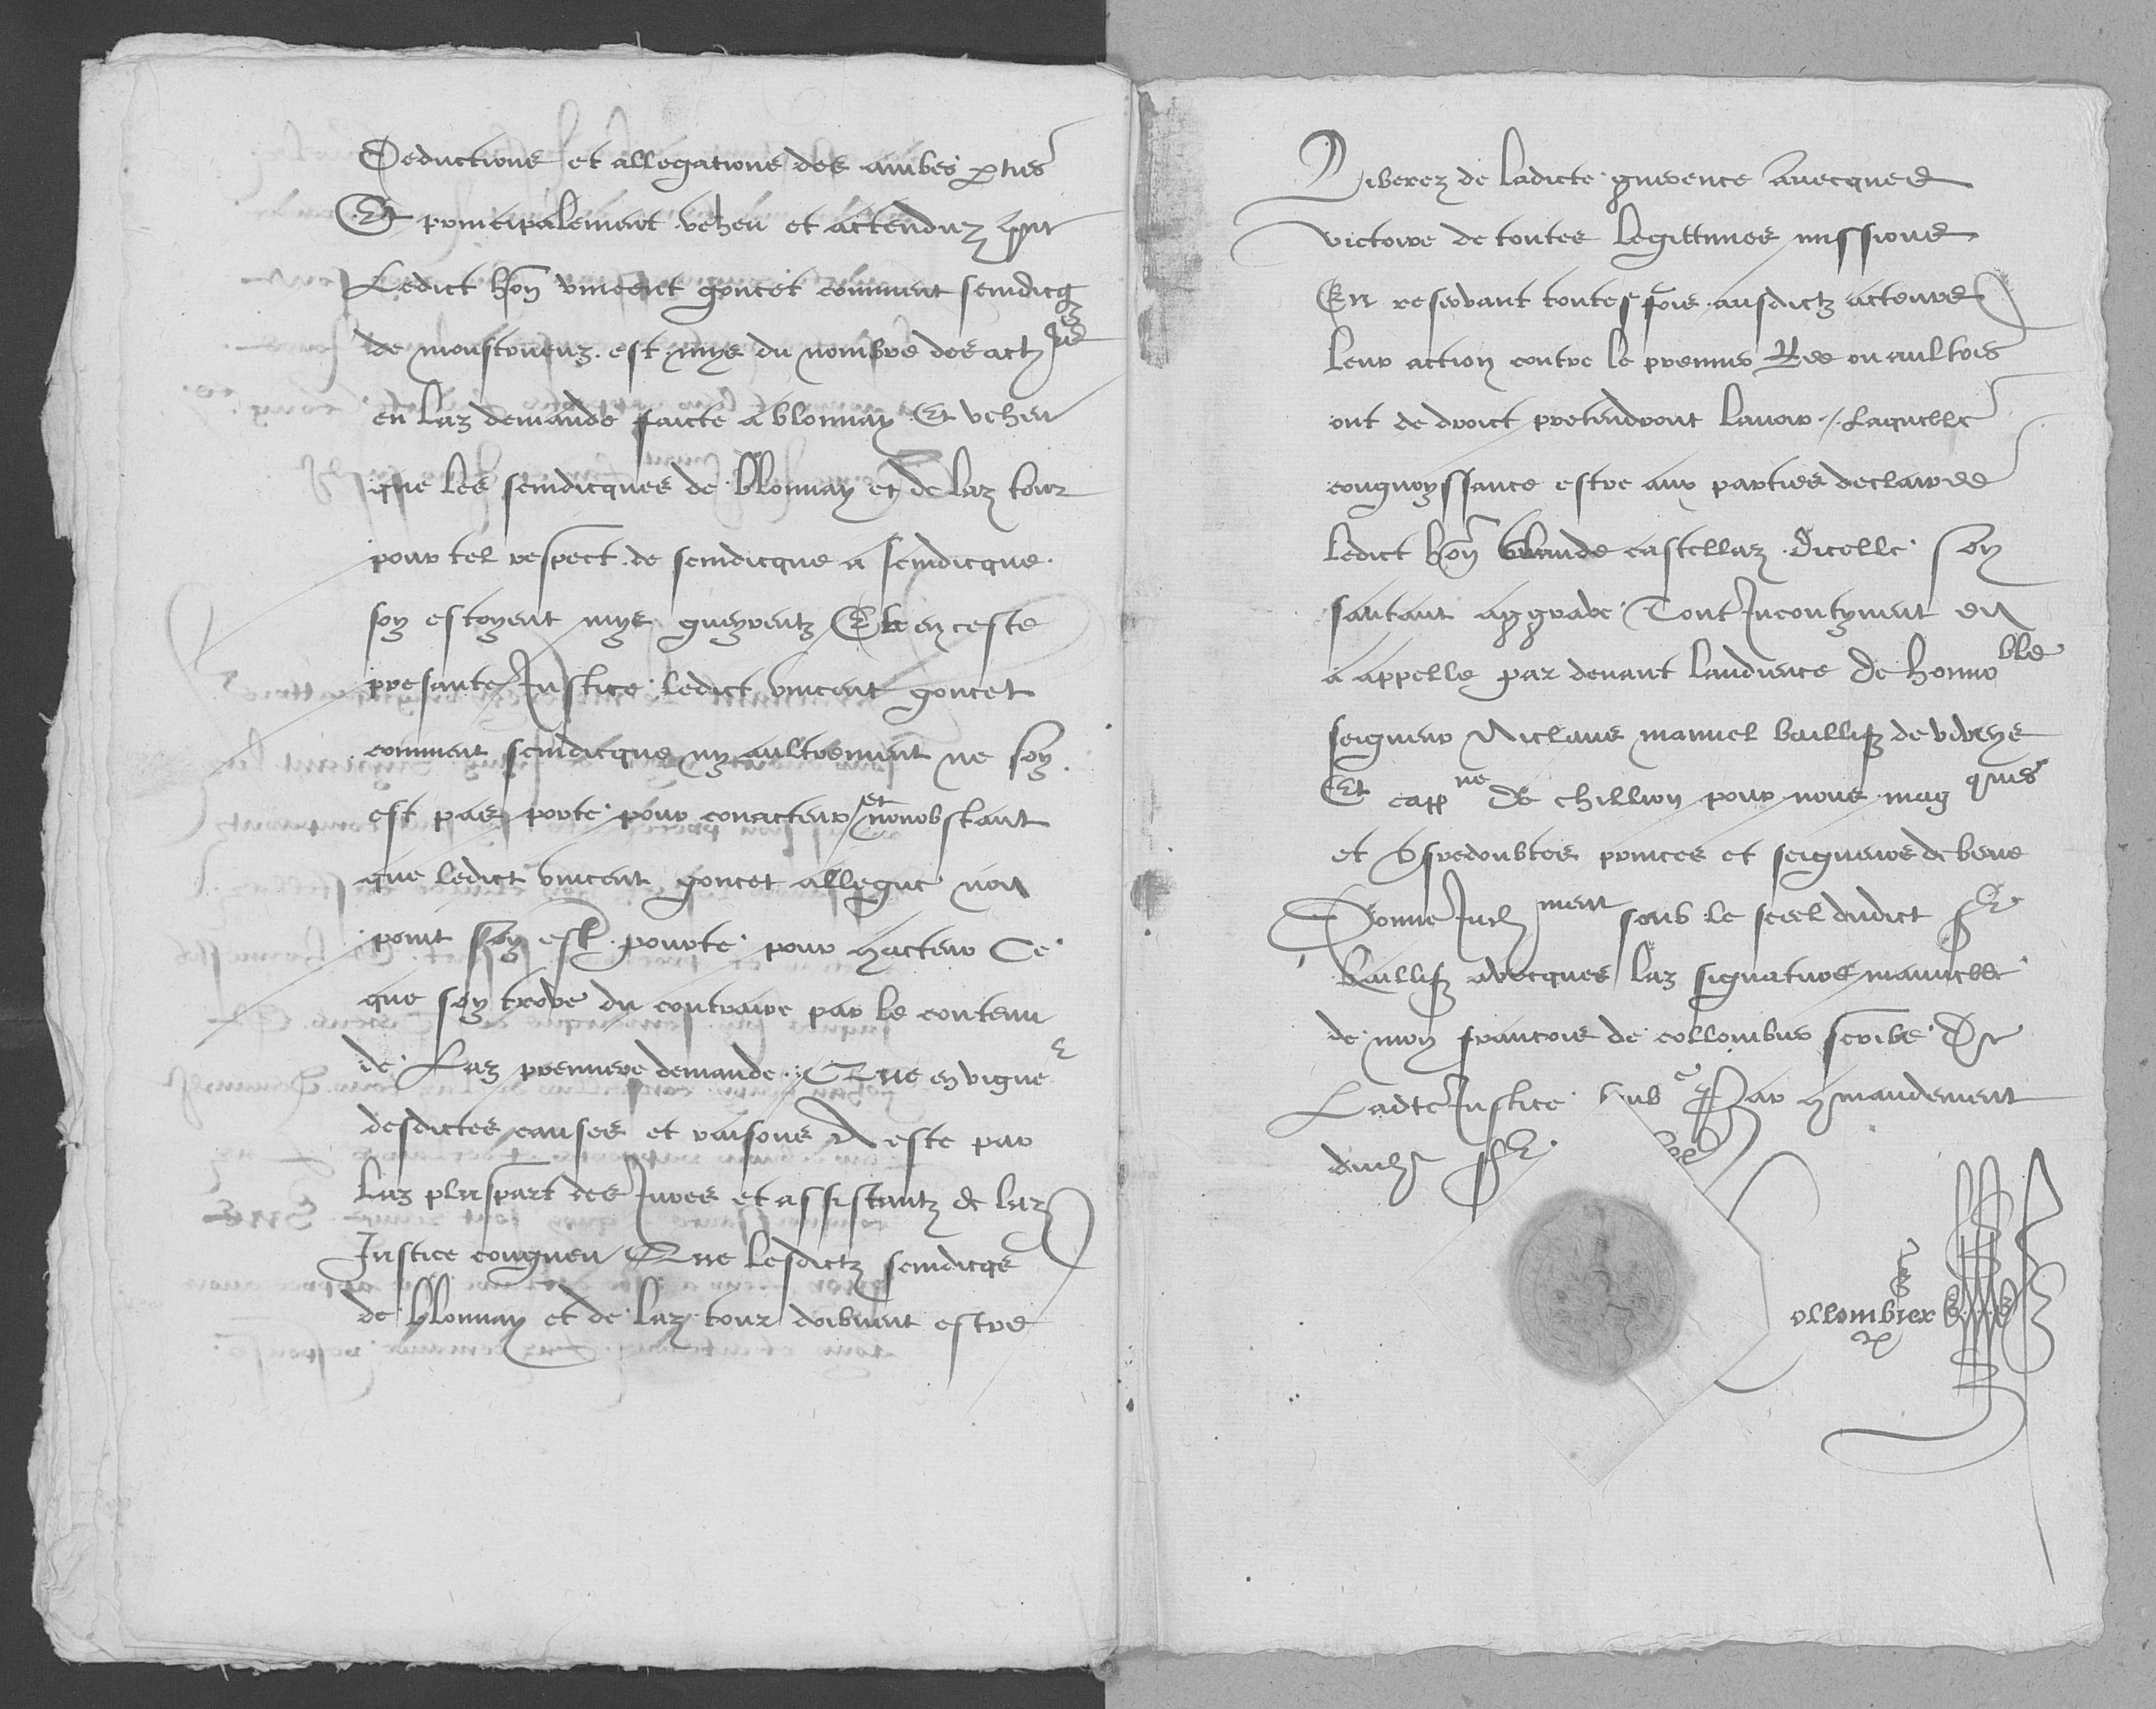 Deductions et allegations des ambes p̲ties
Et principalement veheu et actenduz q̄nt
Ledict hon̄ vincent goncet comment scindicq
de monstreuz est mys du nombre des act̄rs
en laz demande faicte a blonnay Et veheu
que les scindicques de blonnay et de laz tour
pour tel respect de scindicque a scindicque
soy estoyent mys gueyrentz Et en ceste
presante Justice ledict vincent goncet
comment scindicque ny aultrement ne soy
est pas porte pour conacteur et nonobstant
que ledict vincent goncet allegue non
point soy est pourte pour acteur Ce
que soy trove du contraire par le contenu
de Laz premiere demande Que en vigueᵉ
desdictes causes et raisons A este par
Laz pluspart des Jures et assistantz de laz
Justice congneu Que lesdictz scindicqs
de blonnay et de laz tour doibvent estre
Liberez de ladicte guerence avecques
victoire de toutes legittimes missions
En reservant toutesfois ausdictz acteurs
leur action contre le premier Ree ou aultres
ont de droict pretendront lavoir Laquelle
congnoyssance estre aux parties declairee
ledict hon̄ claude castellaz dicelle soy
santant aggrave Tout Incontynent en
a appelle par devant laudience de honnoble
seigneur Niclaus manuel baillifz de viveys
Et cappne de chillion pour nous magques
et tresredoubtes princes et seigneurs de berne
Donne Judment soub le seel dudict Sr
baillifz avecques laz signature manuelle
de moy francois de collombier scribe de
Ladte Justice Par commandement
dudt Sr
Collombier